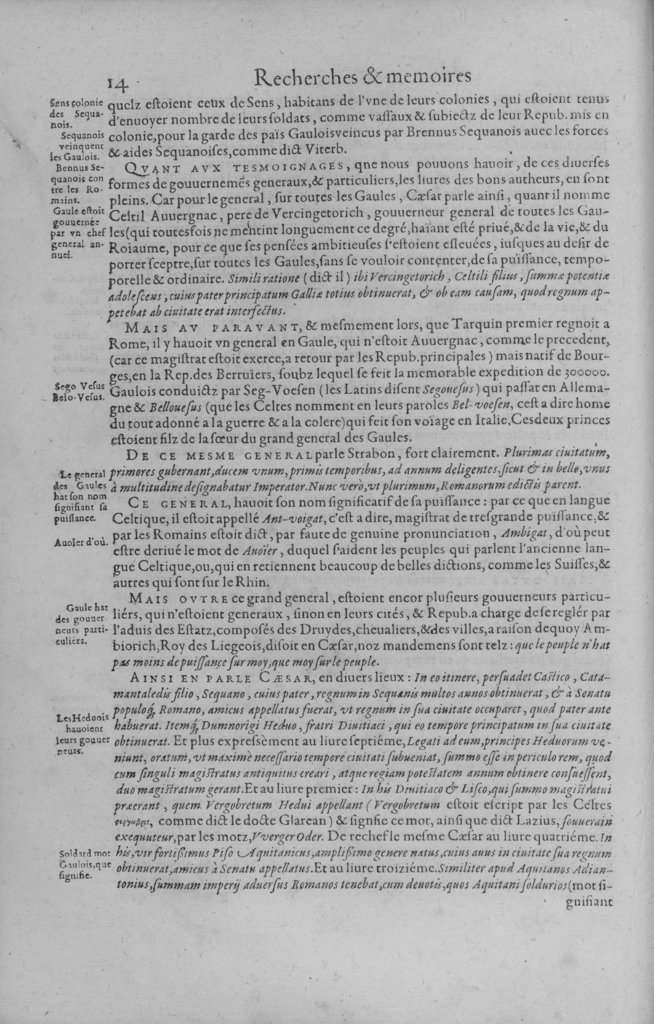 14
Recherches & memoires
Sens colonie
des Sequa-
nois.
Sequanois
veinquent
les Gaulois.
Bennus Se-
quanois con
tre les Ro-
mains.
Gaule eſtoit
gouuernée
par vn chef
general an-
nuel.
quelz eſtoient ceux de Sens, habitans de l'vne de leurs colonies, qui eſtoient tenus
d'enuoyer nombre de leurs ſoldats, comme vaſſaux & ſubiectz de leur Repub. mis en
colonie, pour la garde des païs Gaulois veincus par Brennus Sequanois auec les forces
& aides Sequanoiſes, comme dict Viterb.
QVANT AVX TESMOIGNAGES, que nous pouuons hauoir, de ces diuerſes
formes de gouuernemés generaux, & particuliers, les liures des bons autheurs, en ſont
pleins. Car pour le general, ſur toutes les Gaules, Cæſar parle ainſi, quant il nomme
Celtil Auuergnac, pere de Vercingetorich, gouuerneur general de toutes les Gau-
les (qui toutesfois ne meintint longuement ce degré, haïant eſté priué, & de la vie, & du
Roïaume, pour ce que ſes penſées ambitieuſes ſ'eſtoient eſleuées, iuſques au deſir de
porter ſceptre, ſur toutes les Gaules, ſans ſe vouloir contenter, de ſa puiſſance, tempo-
porelle & ordinaire. Simili ratione (dict il) ibi Vercingetorich, Celtili filius, ſummæ potentiæ
adoleſcens, cuius pater principatum Galliæ totius obtinuerat, & ob eam cauſam, quod regnum ap-
petebat ab ciuitate erat interfectus.
MAIS AV PARAVANT, & meſmement lors, que Tarquin premier regnoit a
Rome, il y hauoit vn general en Gaule, qui n'eſtoit Auuergnac, comme le precedent,
(car ce magiſtrat eſtoit exercé, a retour par les Repub. principales) mais natif de Bour-
ges, en la Rep. des Berruïers, ſoubz lequel ſe feit la memorable expedition de 300000.
Sego Veſus
Belo-Veſus.
Gaulois conduictz par Seg-Voeſen (les Latins diſent Segoueſus) qui paſſat en Allema-
gne & Belloueſus (que les Celtes nomment en leurs paroles Bel-voeſen, ceſt a dire home
du tout adonné a la guerre & a la colere) qui feit ſon voïage en Italie. Ces deux princes
eſtoient filz de la ſœur du grand general des Gaules.
DE CE MESME GENERAL parle Strabon, fort clairement. Plurimas ciuitatum,
primores gubernant, ducem vnum, primis temporibus, ad annum deligentes. ſicut & in bello, vnus
à multitudine deſignabatur Imperator. Nunc verò, vt plurimum, Romanorum edictis parent.
Le general
des Gaules
hat ſon nom
ſignifiant ſa
puiſſance.
Auoïer d'où.
CE GENERAL, hauoit ſon nom ſignificatif de ſa puiſſance : par ce que en langue
Celtique, il eſtoit appellé Ant-voigat, c'eſt a dire, magiſtrat de treſgrande puiſſance, &
par les Romains eſtoit dict, par faute de genuine pronunciation, Ambigat, d'où peut
eſtre deriué le mot de Auoïer, duquel ſ'aident les peuples qui parlent l'ancienne lan-
gue Celtique, ou, qui en retiennent beaucoup de belles dictions, comme les Suiſſes, &
autres qui ſont ſur le Rhin.
Gaule hat
des gouuer-
neurs parti-
culiérs.
MAIS OVTRE ce grand general, eſtoient encor pluſieurs gouuerneurs particu-
liérs, qui n'eſtoient generaux, ſinon en leurs cités, & Repub. a charge de ſe reglér par
l'aduis des Eſtatz, compoſés des Druydes, cheualiers, & des villes, a raiſon dequoy Am-
biorich, Roy des Liegeois, diſoit en Cæſar, noz mandemens ſont telz : que le peuple n'hat
pas moins de puiſſance ſur moy, que moy ſur le peuple.
AINSI EN PARLE CÆSAR, en diuers lieux : In eo itinere, perſuadet Caſtico, Cata-
mantaledis filio, Sequano, cuius pater, regnum in Sequanis multos annos obtinuerat, & à Senatu
populoq́; Romano, amicus appellatus fuerat, vt regnum in ſua ciuitate occuparet, quod pater ante
Les Heduois
hauoient
leurs gouuer
neurs.
habuerat. Itemq́; Dumnorigi Heduo, fratri Diuitiaci, qui eo tempore principatum in ſua ciuitate
obtinuerat. Et plus expreſsèment au liure ſeptiéme, Legati ad eum, principes Heduorum ve-
niunt, oratum, vt maximè neceſſario tempore ciuitati ſubueniat, ſummo eſſe in periculo rem, quod
cum ſinguli magiſtratus antiquitus creari, atque regiam poteſtatem annum obtinere conſueſſent,
duo magiſtratum gerant. Et au liure premier : In his Diuitiaco & Liſco, qui ſummo magiſtratui
præerant, quem Vergobretum Hedui appellant (Vergobretum eſtoit eſcript par les Celtes
comme dict le docte Glarean) & ſignfie ce mot, ainſi que dict Lazius, ſouuerain
exequuteur, par les motz, Vverger Oder. De rechef le meſme Cæſar au liure quatriéme. In
Soldard mot
Gaulois, que
ſignifie.
his, vir fortiſsimus Piſo Aquitanicus, ampliſsimo genere natus, cuius auus in ciuitate ſua regnum
obtinuerat, amicus à Senatu appellatus. Et au liure troiziéme. Similiter apud Aquitanos Adian-
tonius, ſummam imperij aduerſus Romanos tenebat, cum deuotis, quos Aquitani ſoldurios (mot ſi-
gnifiant